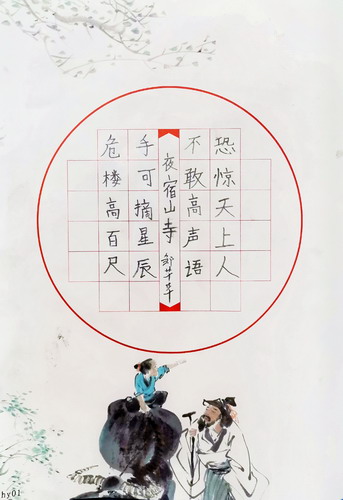 危楼高百尺
手可摘星辰
夜宿山寺 邹
不敢高声语
恐惊天上人
hy01